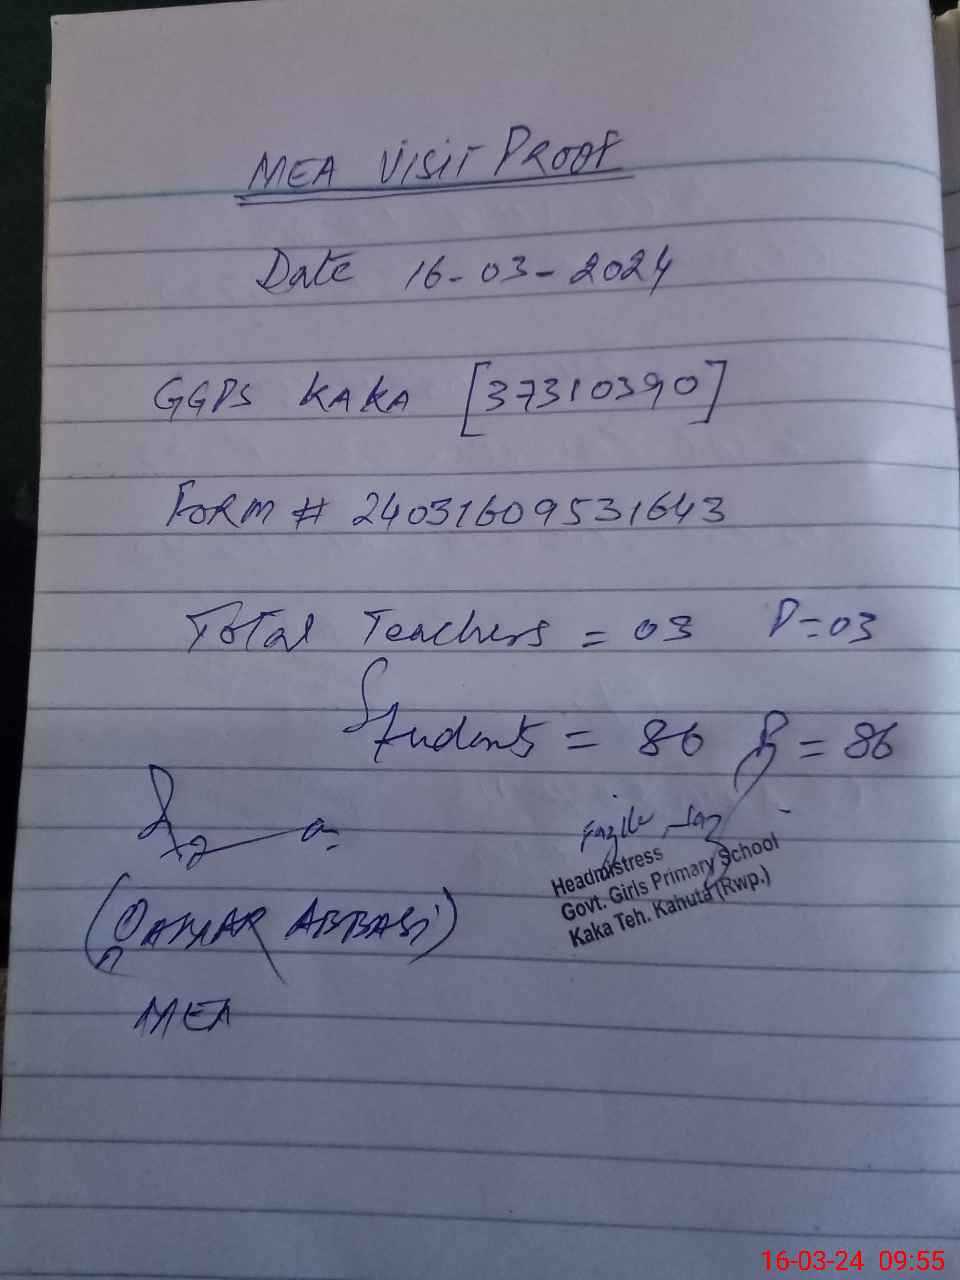 MEA VISIT PROOF
Date 16-03-2024
GGPS KAKA [37310390]
FORM # 24031609531643
Total Teachers = 03 P=03
Students = 86 P = 86
Headmistress
Govt. Girls Primary School
Kaka Teh. Kahuta (Rwp.)
(QAMAR ABBASI)
MEA
16-03-24 09:55